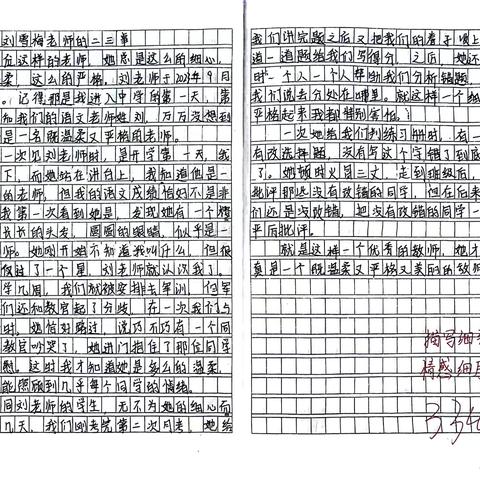 刘雪梅老师的二三事
位这样的老师，她总是这么的细心，
柔，这么的严格。刘老师于2023年9月
。记得那是我进入中学的第一天，第
和我们的语文老师姓刘，万万没想到
是一名既温柔又严格的老师。
一次见刘老师时，是开学第一天，我
下，而她站在讲台上，我知道他是一
的老师，但我的语文成绩恰好不是非
我第一次看到她是，发现她有一个
长长的头发，圆圆的眼睛，似乎是一
师。她刚开始不知道我叫什么，但很
仅过了一个星，刘老师就认识我了。
学几周，我们就被安排去军训，但军
们还和教官起了分歧，在一次我们与
时，她恰好路过，说巧不巧有一个同
教官吵哭了，她进门抱住了那位同学
慰。这时我才知道她是多么的温柔，
能照顾到几乎每个同学的情绪。
同刘老师的学生，无不为她的细心而
几天，我们刚考完第二次月考，她给
我们讲完题之后又把我们的卷子
道一道题给我们写得分，之后，她还
时一个人一个人帮助我们分析错题，
我们说丢分处在哪里。就这样一个
严格起来我都特别害怕。
一次她给我们判练习册时，有一
有改选择题，没有写这个字错了到底
了。她顿时火冒三丈，走到班级后，
批评那些没有改错的同学，但在后来
们还是没改错，把没有改错的同学一
平后批评。
就是这样一个优秀的教师，她才
真是一个既温柔又严格又美丽的教师
描写细
情感细
334